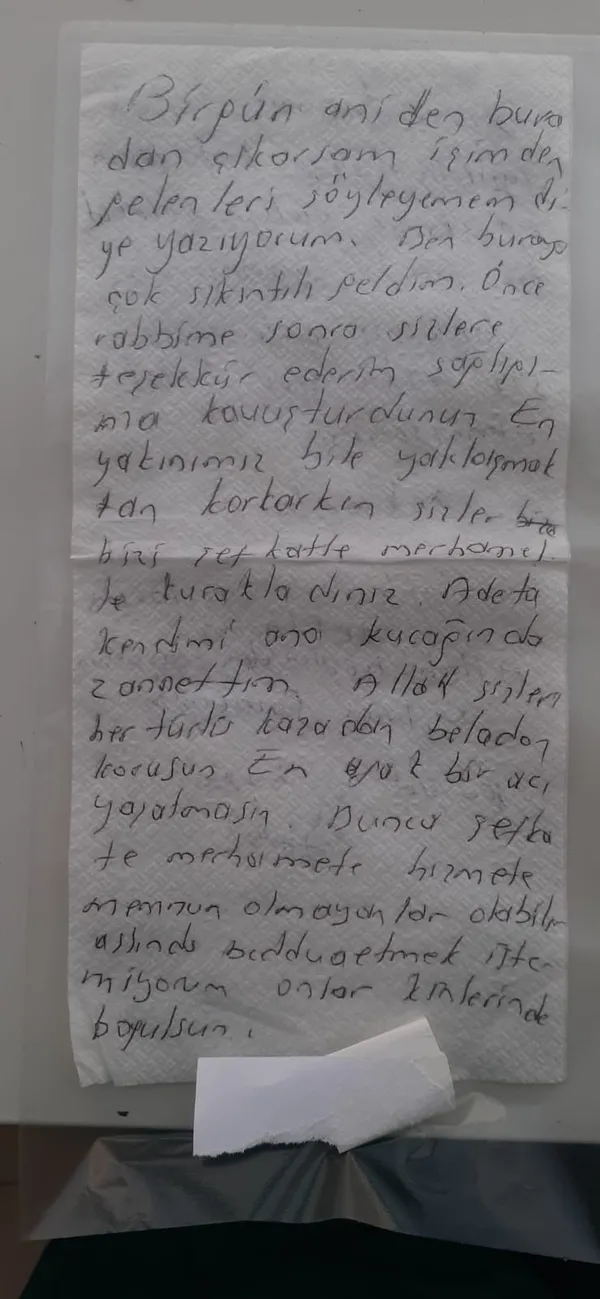 Birgün aniden bura
dan çıkarsam içimden
gelenleri söyleyemem di-
ye yazıyorum. Ben buraya
çok sıkıntılı geldim. Önce
rabbime sonra sizlere
teşekkür ederim sağlığı-
ma kavuşturdunuz En
yakınımız bile yaklaşmak
tan korkarkın sizler
bizi şefkatle merhamet.
le kucakladınız. Adeta
kendimi ana kucağında
zannettim. Allah sizleri
her türlü kazadan beladan
korusun En ufak bir acı
yaşatmasın. Bunca şefka
te merhamete hizmete
memnun olmayanlar olabilir
aslında bedduaetmek iste-
miyorum onlar kinlerinde
boğulsun.